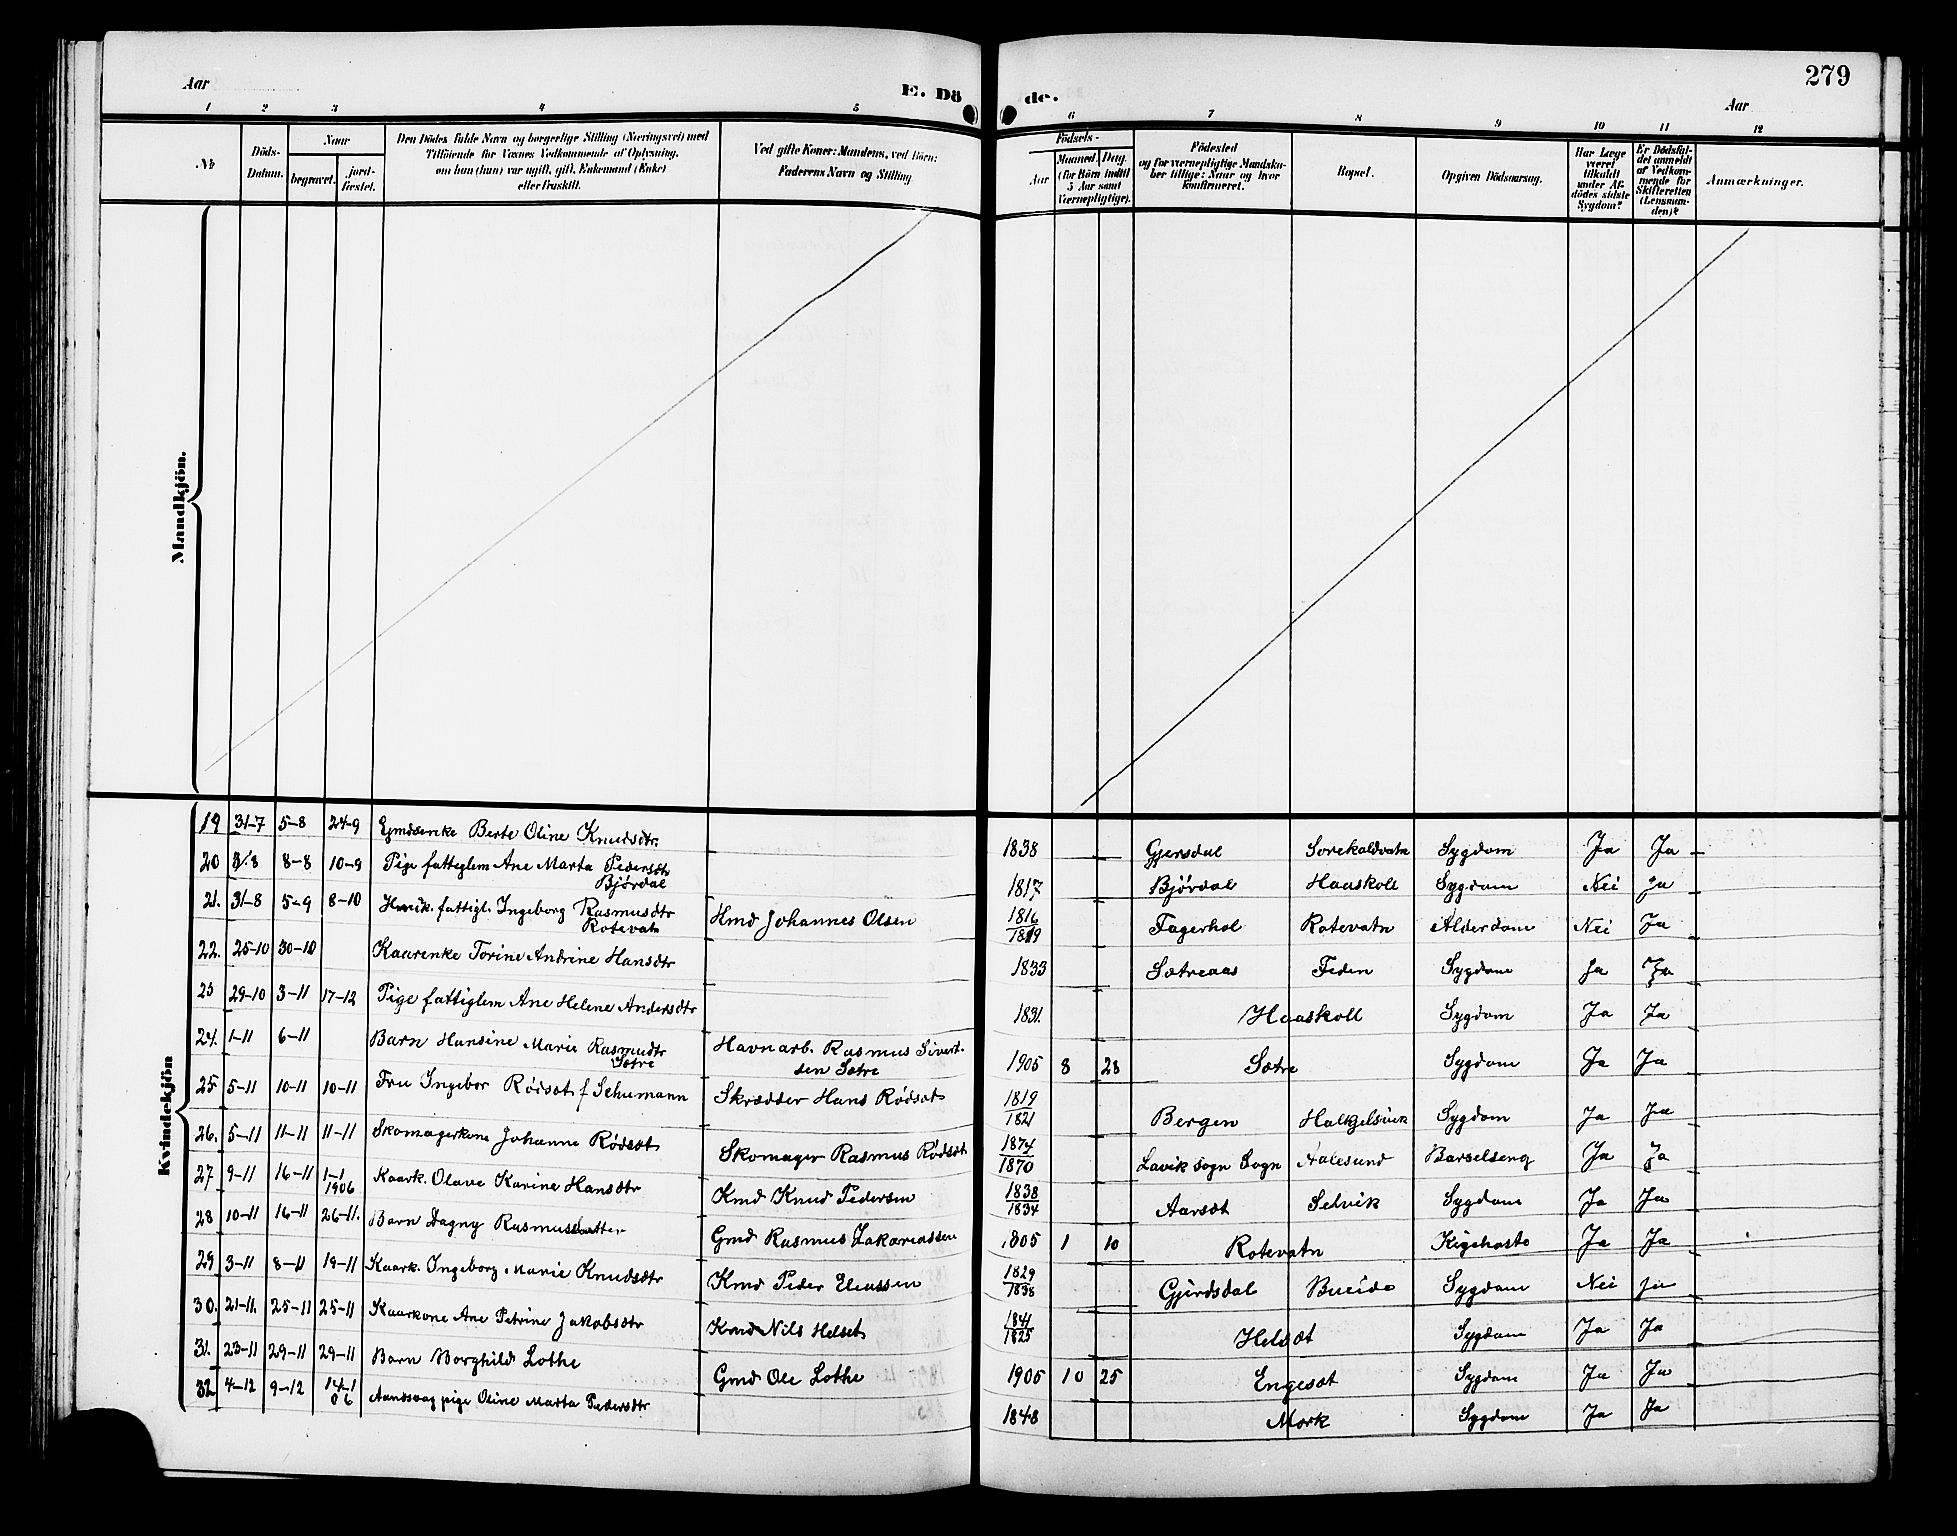 279
Aar
E. Dö
de.
Aar
1 2 3 4 5 6 7 8 9 10 11 12
No
Döds-
Datum.
Naar
begravet.
jord-
fæstet.
Den Dödes fulde Navn og borgerlige Stilling (Næringsvei) med
Tilföiende for Voxnes Vedkommende af Oplysning,
om han (hun) var ugift, gift, Enkemand (Enke)
eller fraskilt.
Ved gifte Koner: Mandens, ved Börn:
Faderens Navn og Stilling
Födsels-
Aar
Maaned. Dag.
(for Börn indtil
5 Aar samt
Værnepligtige).
Födested
og for værnepligtige Mandska-
ber tillige: Naar og hvor
konfirmeret.
Bopæl.
Opgiven Dödsaarsag.
Har Læge
været
tilkaldt
under Af-
dödes sidste
Sygdom?
Er Dödsfal-
det anmeldt
af Vedkom-
mende for
Skifteretten
(Lensman-
den)?
Anmærkninger.
Mandkjön.
Kvindekjön
19 31-7 5-8 24-9 Gmdsenke Berte Oline Knudsdtr. 1838 Gjersdal Sorekaldvatn Sygdom Ja Ja
20 3/8 8-8 10-9 Pige fattiglem Ane Marta Pedersdtr
Bjørdal 1817 Bjørdal Haaskoll Sygdom Nei Ja
21. 31-8 5-9 8-10 fattigl. Ingeborg Rasmusdtr
Rotevatn Hmd Johannes Olsen 1816
1819 Fagerhol Rotevatn Alderdom Nei Ja
22. 25-10 30-10 Kaarenke Torine Andrine Hansdtr 1833 Sætreaas Feden Sygdom Ja Ja
23 29-10 3-11 17-12 Pige fattiglem Ane Helene Andersdtr 1831. Haaskoll Sygdom Ja Ja
24. 1-11 6-11 Barn Hansine Marie Rasmusdtr
Sætre Havnarb. Rasmus Sivert-
sen Sætre 1905 8 28 Sætre Sygdom Ja Ja
25 5-11 10-11 10-11 Fru Ingebor Rødsæt f Schumann Skrædder Hans Rødsæt 1819
1821 Bergen Halkjelsvik Sygdom Ja Ja
26. 5-11 11-11 11-11 Skomagerkone Johanne Rødsæt Skomager Rasmus Rødsæt 1874
1870 Lavik sogn Sogn Aalesund Barselseng Ja Ja
27 9-11 16-11 1-1
1906 Kaark. Olave Karine Hansdtr Kmd Knud Pedersen 1838
1834 Aarsæt Selvik Sygdom Ja Ja
28 10-11 16-11 26-11. Barn Dagny Rasmusdatter Gmd Rasmus Zakariassen 1905 1 10 Rotevatn Kighoste Ja Ja
29 3-11 8-11 19-11 Kaark. Ingeborg Marie Knudsdtr Kmd Peder Eliassen 1829
1838 Gjerdsdal Bueide Sygdom Nei Ja
30. 21-11. 25-11 25-11 Kaarkone Ane Petrine Jakobsdtr Kmd Nils Helset 1841
1825 Helsæt Sygdom Ja Ja
31. 23-11 29-11 29-11 Barn Borghild Lothe Gmd Ole Lothe 1905 10 25 Engesæt Sygdom Ja Ja
32 4-12 9-12 14-1
06 Aandssvag pige Oline Marta Pedersdtr 1848 Mork Sygdom Ja Ja